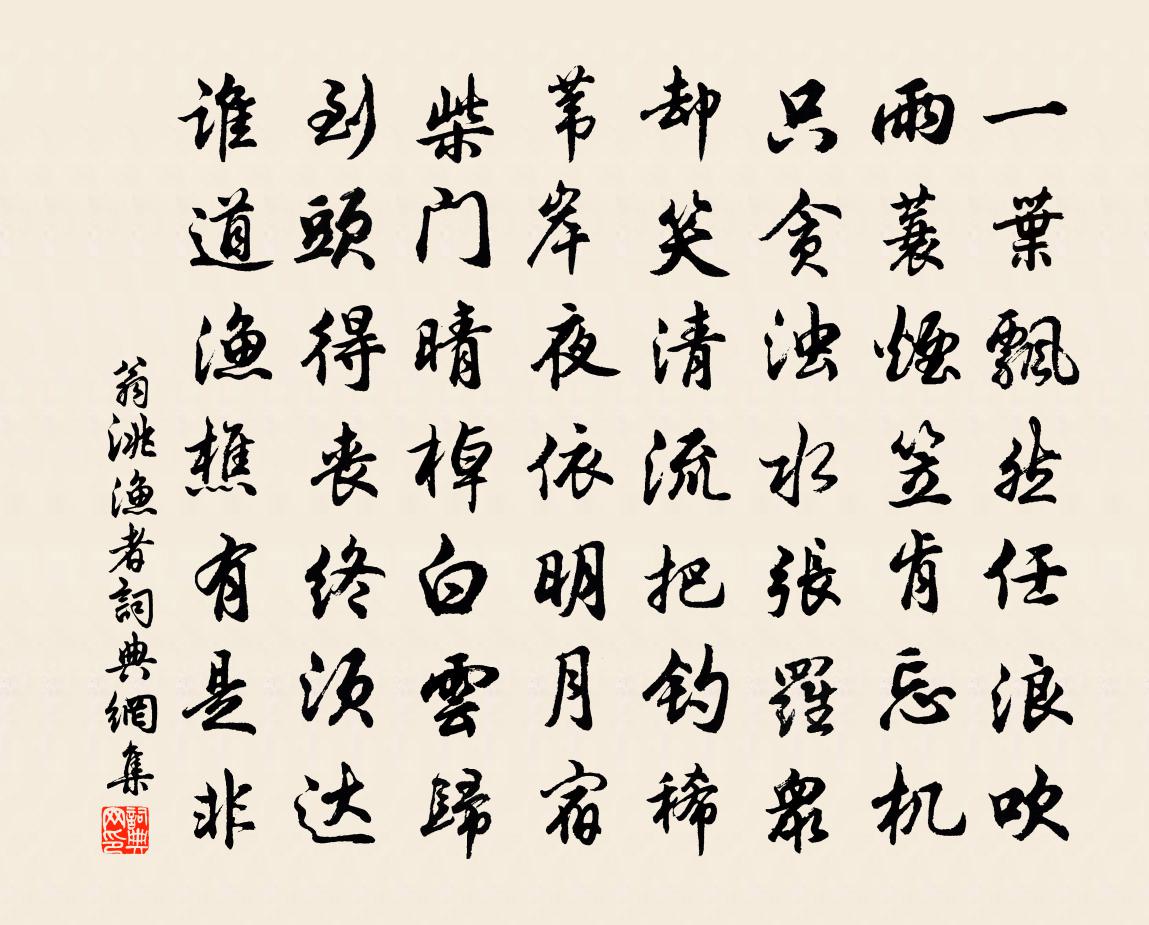 一葉飄然任浪吹
雨蓑煙笠肯忘机
只貪浊水張羅衆
却笑清流把钓稀
苇岸夜依明月宿
柴门晴棹白雲歸
到頭得丧终须达
谁道渔樵有是非
翁洮渔者詞典網集
詞典网印